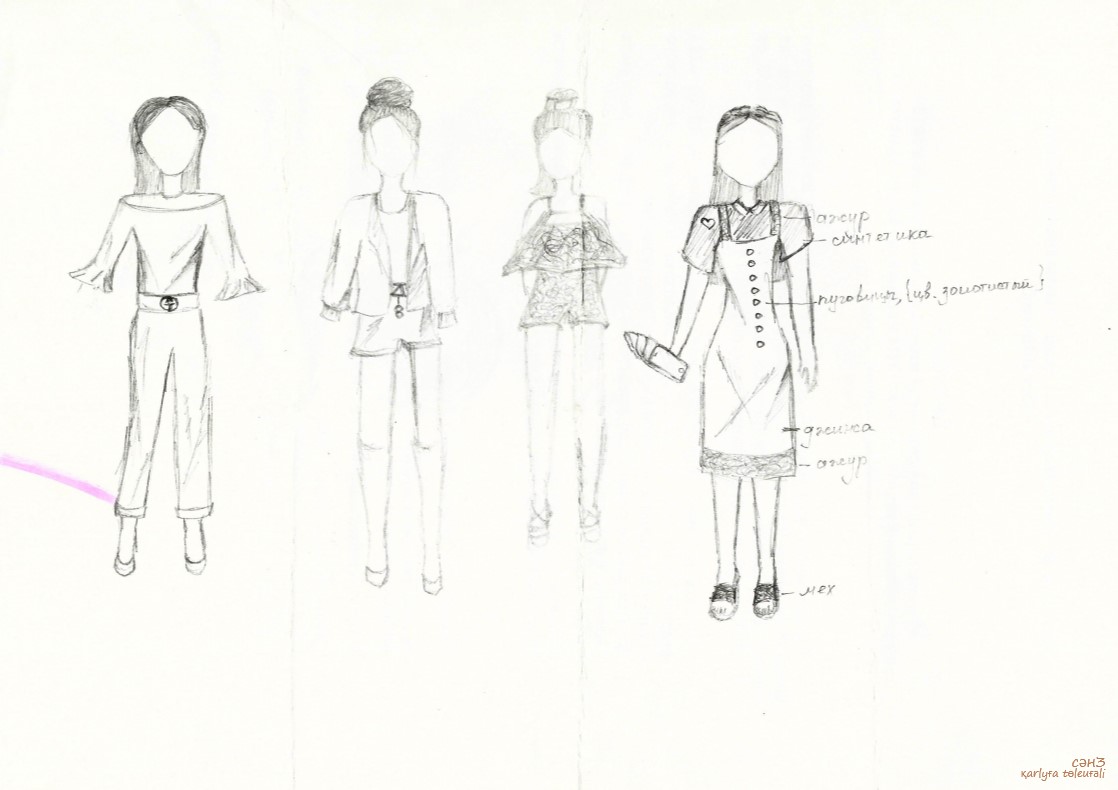 ажур
синтетика
пуговицы, (цв. золотистый)
джинса
ажур
мех
сәнӠ
қarlyғa tөleuғali